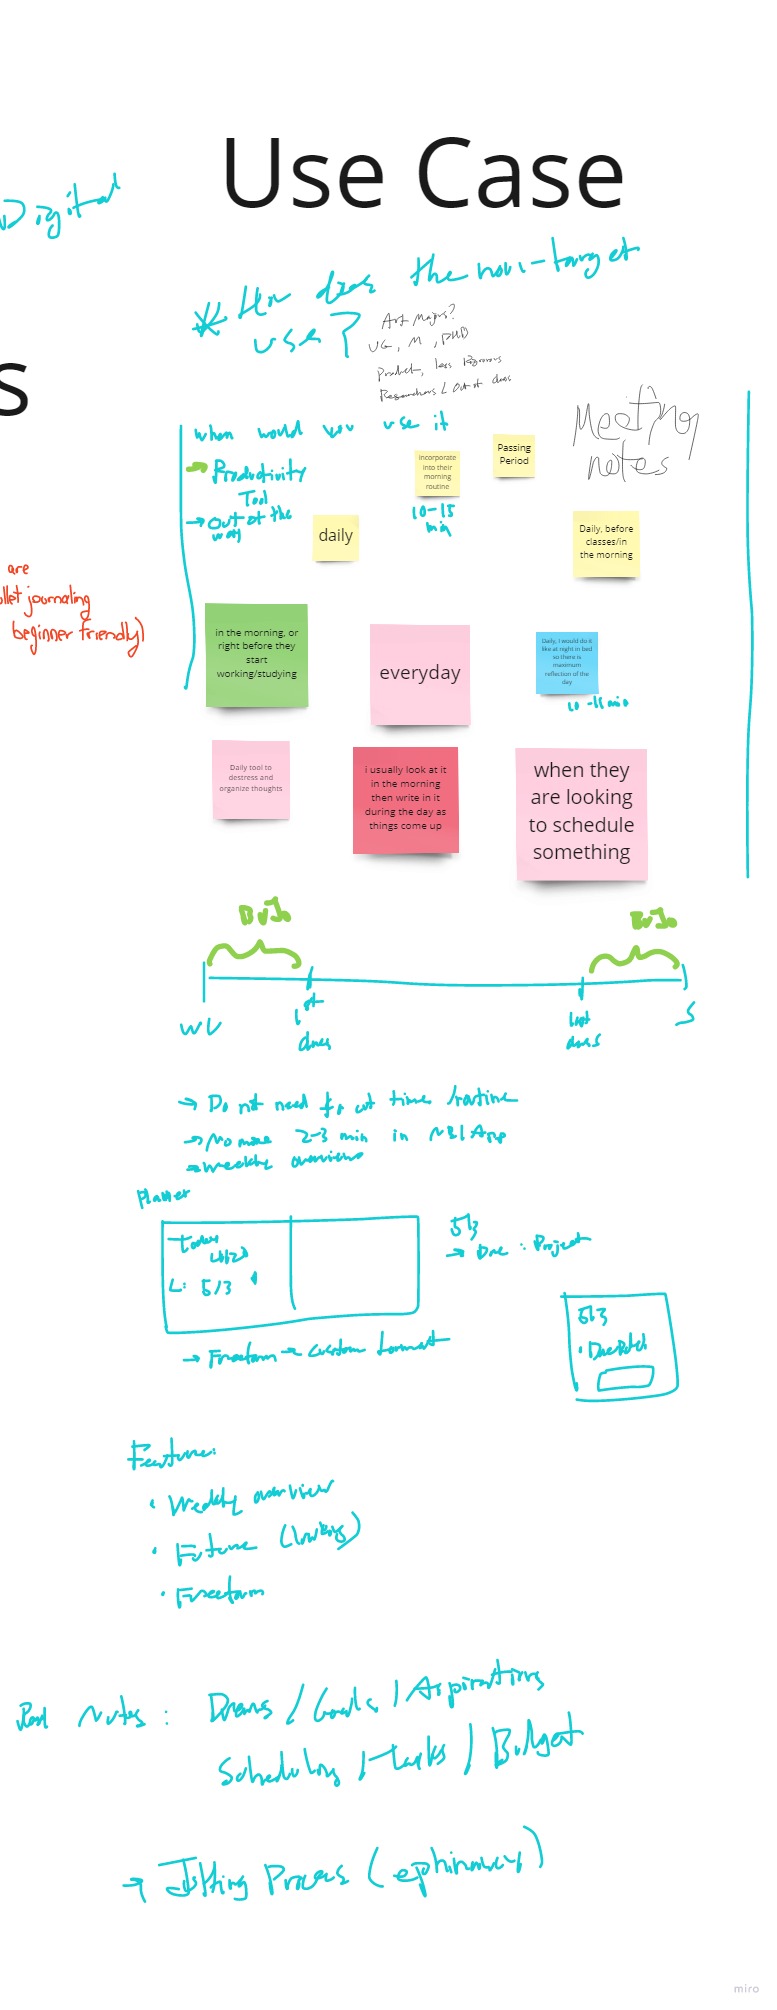 Use Case
Digital
* How does the non-target
use?
Art Majors?
UG, M, PHD
Product, less Rigorous
Researchers / Out of class
s
Meeting
notes
when would you use it
→ Productivity
Tool
→ Out of the
way
incorporate
into their
morning
routine
10-15
min
Passing
Period
daily
Daily, before
classes/in
the morning
are
llet journaling
beginner friendly)
in the morning, or
right before they
start
working/studying
everyday
Daily, I would do it
like at night in bed
so there is
maximum
reflection of the
day
min
Daily tool to
destress and
organize thoughts
i usually look at it
in the morning
then write in it
during the day as
things come up
when they
are looking
to schedule
something
BuJo
BuJo
WU
1st
class
last
class
S
→ Do not need for cut time routine
→ No more 2-3 min in App
→ weekly overview
Planner
Today
L: 5/3
5/3
→ Due: Project
5/3
→ Freeform → custom format
Feature:
• Weekly overview
• Future (looking)
• Freeform
Notes: Dreams / Goals / Aspirations
Scheduling / tasks / Budget
→ Jotting Process (ephinmeys)
miro